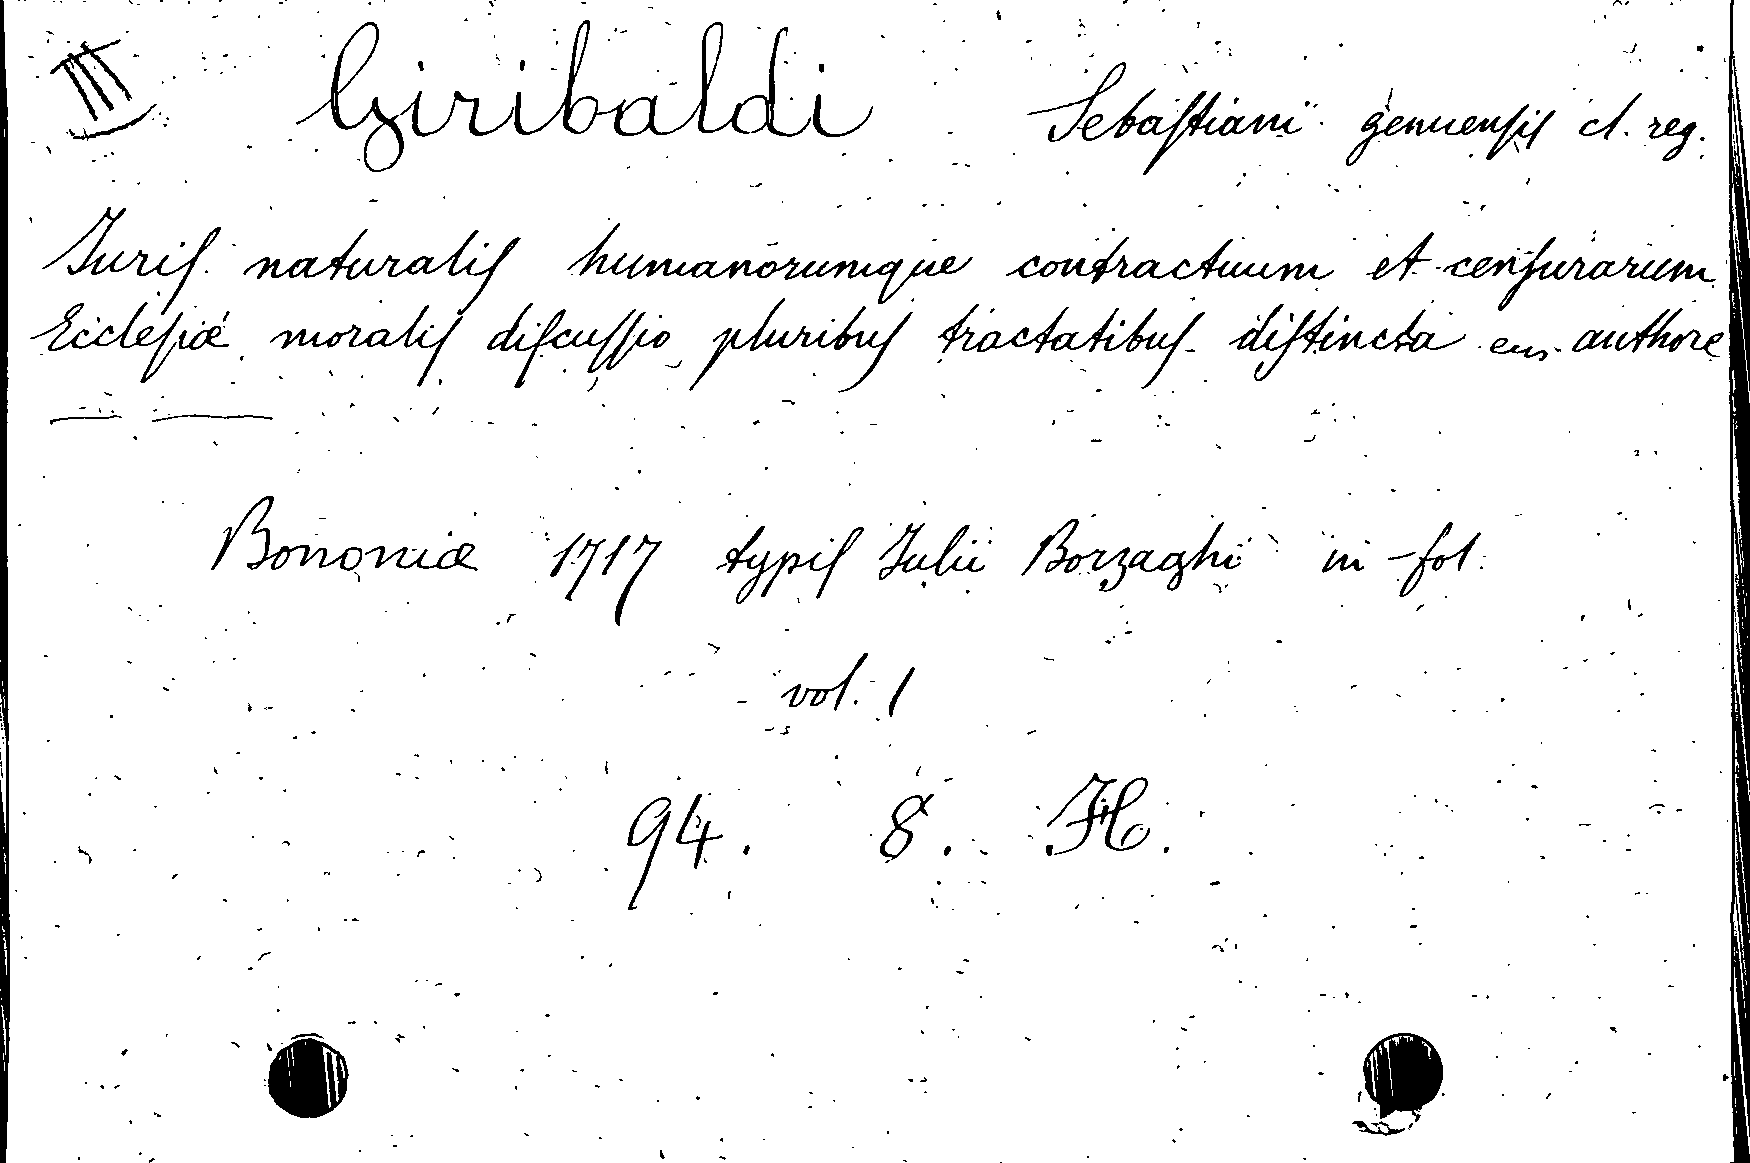 III Giribaldi Sebaſtiani genuenſiſ cl. reg.
Juriſ naturaliſ humanorumque contractuum et cenſurarum
Eccleſiæ moraliſ diſcuſſio pluribuſ tractatibuſ diſtincta authore
Bononiæ 1717 typiſ Julii Borzaghi in-fol.
vol. 1
94. 8. H.